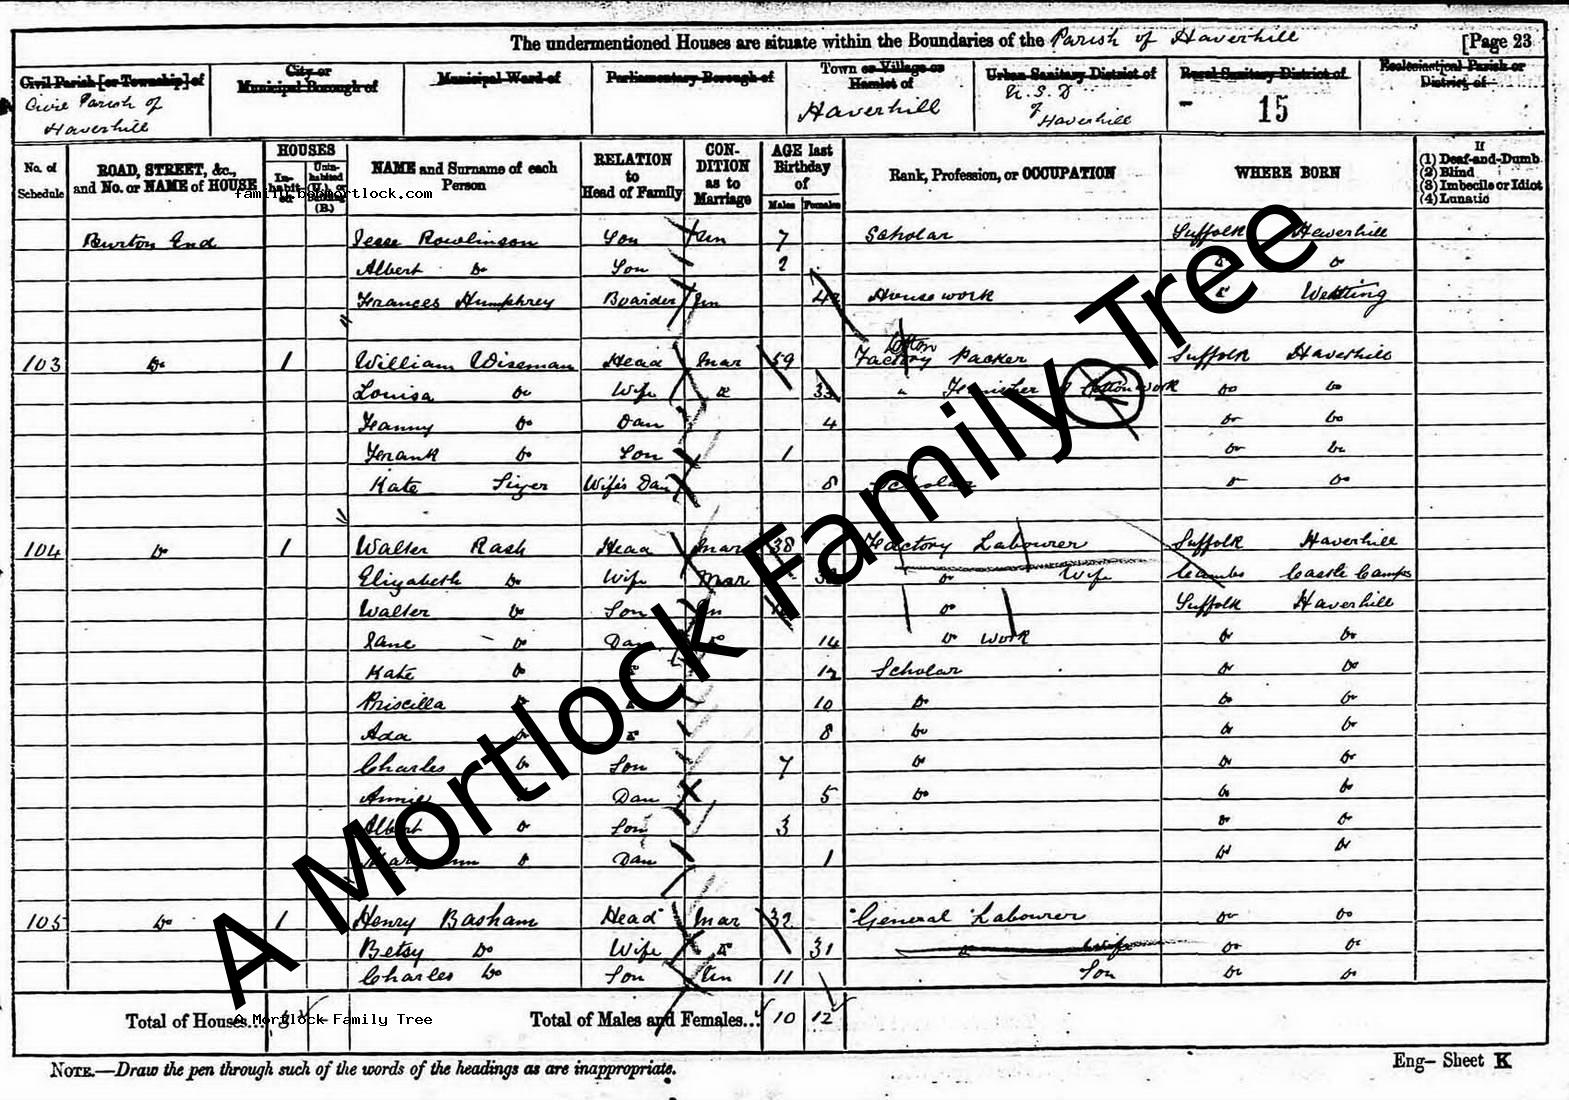 The undermentioned Houses are situate within the Boundaries of the Parish of Haverhill [Page 23
Civil Parish [or Township] of
Civil Parish of
Haverhill
City or
Municipal Borough of
Municipal Ward of
Parliamentary Borough of
Town or Village or
Hamlet of
Haverhill
Urban Sanitary District of
U.S.D
of
Haverhill
Rural Sanitary District of
15
Ecclesiastical Parish or
District of
No. of
Schedule
ROAD, STREET, &c.,
and No. or NAME of HOUSE
HOUSES
In-
habit-
ed
Unin-
habited
(U.), or
Building
(B.)
NAME and Surname of each
Person
RELATION
to
Head of Family
CON-
DITION
as to
Marriage
AGE last
Birthday
of
Males Females
Rank, Profession, or OCCUPATION
WHERE BORN
If
(1) Deaf-and-Dumb
(2) Blind
(3) Imbecile or Idiot
(4) Lunatic
family.bobmortlock.com
Burton End Jesse Rowlinson Son Un 7 Scholar Suffolk Haverhill
Albert Do Son 2 Do Do
Frances Humphrey Boarder Un House work Do
103 Do 1 William Wiseman Head Mar 59 Cotton Factory Packer Suffolk Haverhill
Louisa Do Wife Do " Finisher of Cotton work Do Do
Fanny Do Dau 4 Do Do
Frank Do Son 1 Do Do
Kate Sizer Wife's Dau 8 Scholar Do Do
104 Do 1 Walter Rash Head Mar 38 Factory Labourer Suffolk Haverhill
Elizabeth Do Wife Mar Do Wife Cambs Castle Camps
Walter Do Son Un Do Suffolk Haverhill
Jane Do Dau Do 14 Do work Do Do
Kate Do Do 12 Scholar Do Do
Priscilla Do Do 10 Do Do Do
Ada Do Do 8 Do Do Do
Charles Do Son 7 Do Do Do
Annie Do Dau 5 Do Do Do
Albert Do Son 3 Do Do
Mary Ann Do Dau 1 Do Do
105 Do 1 Henry Basham Head Mar 32 General Labourer Do Do
Betsy Do Wife Do 31 Do Wife Do Do
Charles Do Son Un 11 Son Do Do
Total of Houses... 3 Total of Males and Females... 10 12
A Mortlock Family Tree
A Mortlock Family Tree
NOTE.—Draw the pen through such of the words of the headings as are inappropriate.
Eng— Sheet K